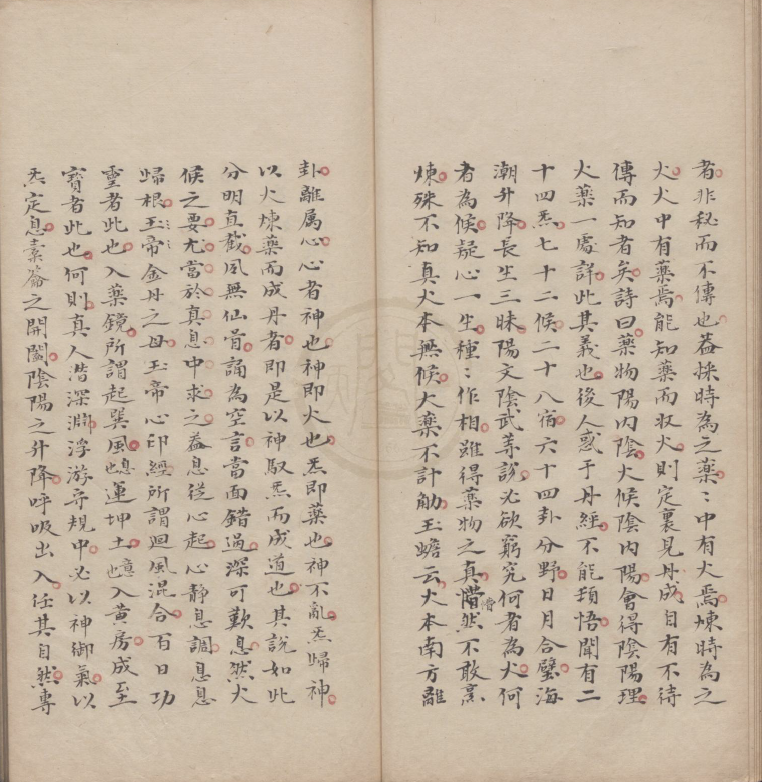 者非秘而不傳也蓋採時為之藥〻中有火焉煉時為之
火火中有藥焉能知藥而収火則定裏見丹成自有不待
傳而知者矣詩曰藥物陽内陰火候陰内陽會得陰陽理
火藥一處詳此其義也後人惑于丹經不能頓悟聞有二
十四炁七十二候二十八宿六十四卦分野日月合璧海
潮升降長生三昧陽文陰武等說必欲窮究何者為火何
者為候疑心一生種〻作相雖得藥物之真懵然不敢烹
煉殊不知真火本無候大藥不計觔玉蟾云火本南方離
卦離属心心者神也神即火也炁即藥也神不亂炁歸神
以火煉藥而成丹者即是以神馭炁而成道也其說如此
分明直截夙無仙骨誦為空言當面錯過深可歎息然火
候之要尤當於真息中求之蓋息從心起心静息調息息
歸根玉帝金丹之母玉帝心印經所謂迴風混合百日功
靈者此也入藥鏡所謂起巽風運坤土入黄房成至
寳者此也何則真人潛深淵浮游守規中必以神御氣以
炁定息橐籥之開闔陰陽之升降呼吸出入任其自然專